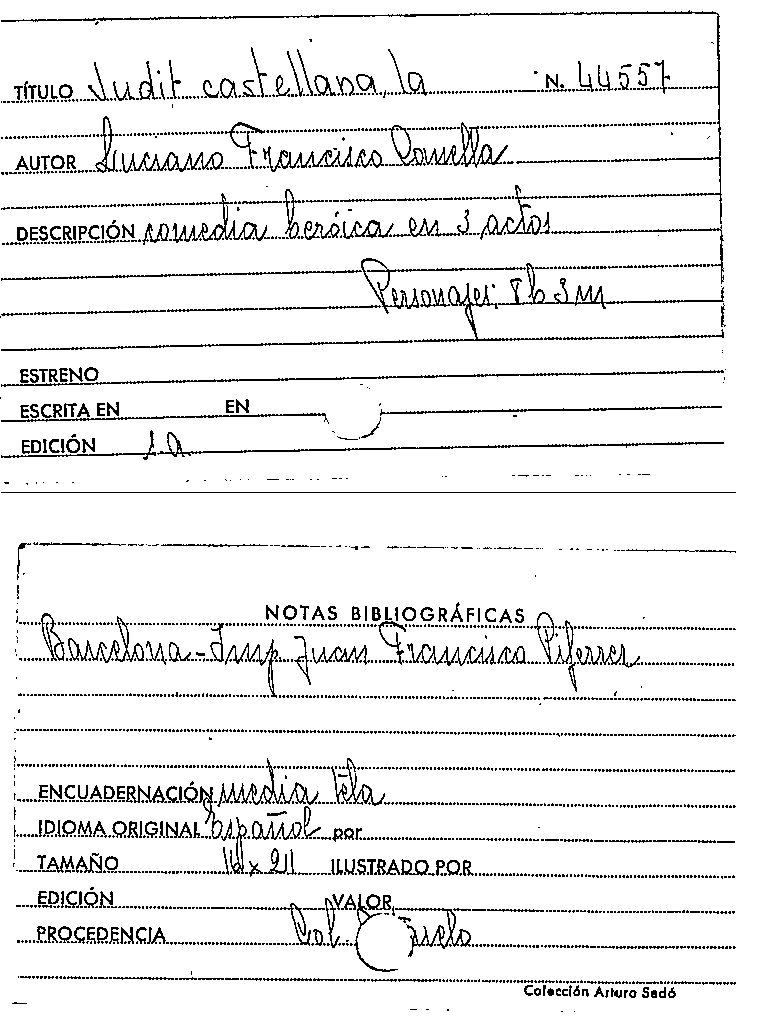 TÍTULO Judit castellana, la N. 44557
AUTOR Luciano Francisco Comella
DESCRIPCIÓN comedia heróica en 3 actos
Personajes: 8 h 3 m
ESTRENO
ESCRITA EN EN
EDICIÓN 1.a
NOTAS BIBLIOGRÁFICAS
Barcelona - Imp Juan Francisco Piferrer
ENCUADERNACIÓN media tela
IDIOMA ORIGINAL Español por
TAMAÑO x 21 ILUSTRADO POR
EDICIÓN VALOR
PROCEDENCIA Col.
Colección Arturo Sedó